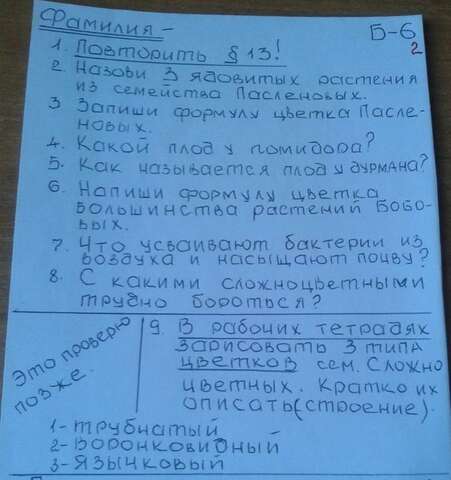 Фамилия -
Б-6
2
1. Повторить § 13!
2. Назови 3 ядовитых растения
из семейства Пасленовых.
3 Запиши формулу цветка Пасле-
новых.
4. Какой плод у помидора?
5. Как называется плод у дурмана?
6. Напиши формулу цветка
большинства растений Бобо-
вых.
7. Что усваивают бактерии из
воздуха и насыщают почву?
8. С какими сложноцветными
трудно бороться?
Это проверю
позже.
9. В рабочих тетрадях
зарисовать 3 типа
цветков сем. Сложно
цветных. Кратко их
описать (строение).
1- трубчатый
2- Воронковидный
3- Язычковый